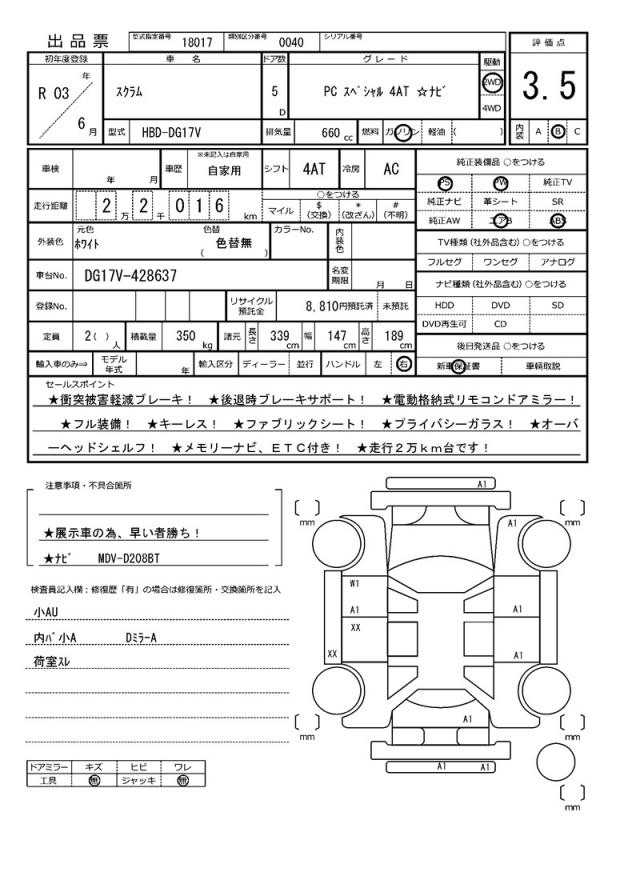 出品票 型式指定番号 18017 類別区分番号 0040 シリアル番号
初年度登録 車名 ドア数 グレード 駆動 評価点
R 03 年 6 月 スクラム 5 D PC スペシャル 4AT ☆ナビ 2WD 4WD 3.5
型式 HBD-DG17V 排気量 660 cc 燃料 ガソリン 軽油 ( ) 内装 A B C
車検 年 月 車歴 ※未記入は自家用 自家用 シフト 4AT 冷房 AC 純正装備品 ○をつける
PS PW 純正TV
走行距離 2 万 2 千 0 1 6 km ○をつける 純正ナビ 革シート SR
マイル $ (交換) * (改ざん) # (不明) 純正AW エアB ABS
外装色 元色 ホワイト 色替 ( 色替無 ) カラーNo. 内装色 TV種類(社外品含む)○をつける
フルセグ ワンセグ アナログ
車台No. DG17V-428637 名変期限 月 日 ナビ種類(社外品含む)○をつける
登録No. リサイクル預託金 8,810円預託済 未預託 HDD DVD SD
DVD再生可 CD
定員 2( ) 人 積載量 350 kg 諸元 長さ 339 cm 幅 147 cm 高さ 189 cm 後日発送品 ○をつける
輸入車のみ⇒ モデル年式 年 輸入区分 ディーラー 並行 ハンドル 左 右 新車保証書 車輌取説
セールスポイント
★衝突被害軽減ブレーキ! ★後退時ブレーキサポート! ★電動格納式リモコンドアミラー!
★フル装備! ★キーレス! ★ファブリックシート! ★プライバシーガラス! ★オーバ
ーヘッドシェルフ! ★メモリーナビ、ETC付き! ★走行2万km台です!
注意事項・不具合箇所
★展示車の為、早い者勝ち!
★ナビ MDV-D208BT
検査員記入欄:修復歴「有」の場合は修復箇所・交換箇所を記入
小AU
内バ小A DミラーA
荷室スレ
ドアミラー キズ ヒビ ワレ
工具 無 ジャッキ 無
A1
[ ] mm [ ] mm
A1
W1
A1 A1
XX
XX A1
A1
[ ] mm [ ] mm
A1 A1
[ ] mm